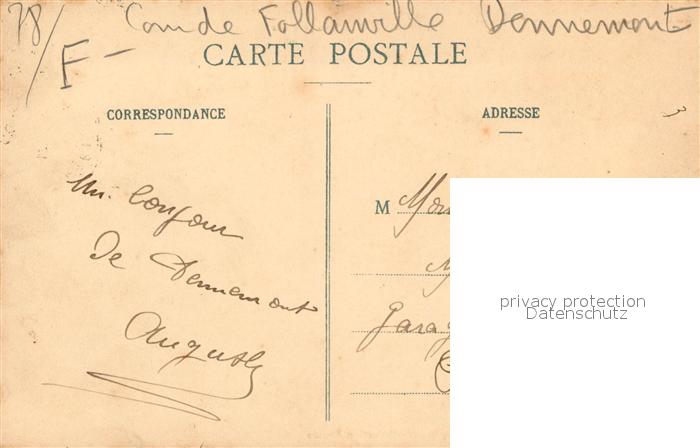 78/ Com de Follainville Dennemont
F-
CARTE POSTALE
CORRESPONDANCE
ADRESSE
Un bonjour
de Dennemont
M
privacy protection
Datenschutz